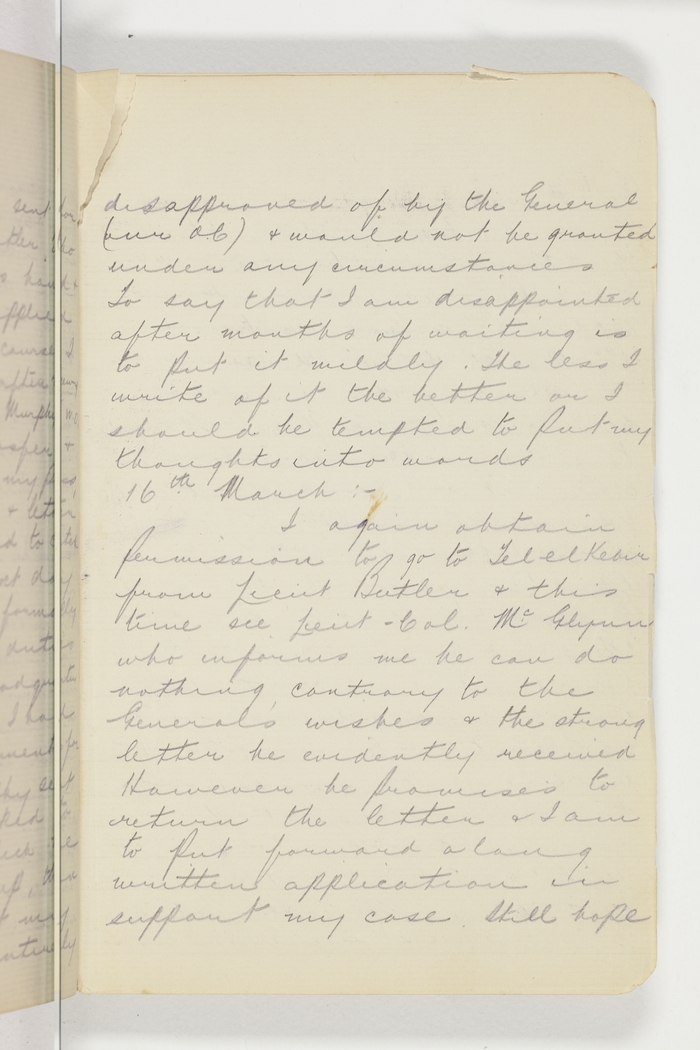 disapproved of by the General
(our O.C) & would not be granted
under any circumstances
To say that I am disappointed
after months of waiting is
to put it mildly. The less I
write of it the better or I
should be tempted to put my
thoughts into words
16th March :-
I again obtain
permission to go to Tel el Kebir
from Lieut Butler & this
time see Lieut-Col. Mc Glynn
who informs me he can do
nothing contrary to the
General's wishes & the strong
letter he evidently received
However he promises to
return the letter & I am
to put forward a long
written application in
support my case. Still hope